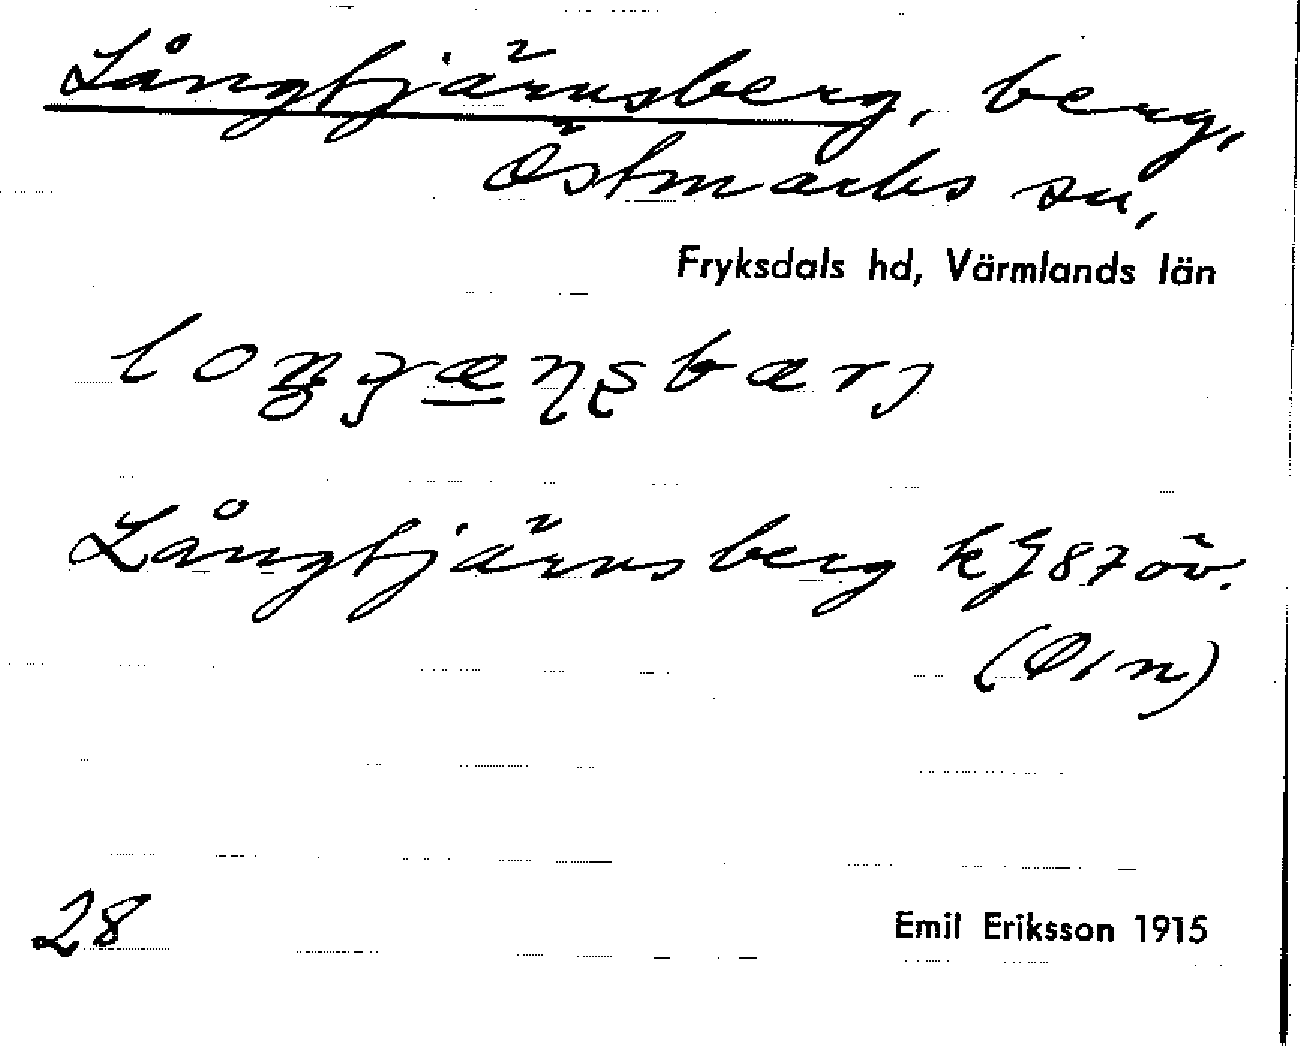 Långtjärnsberg, berg,
Östmarks sn,
Fryksdals hd, Värmlands län
Långtjärnsberg kJ87öv.
28
Emil Eriksson 1915